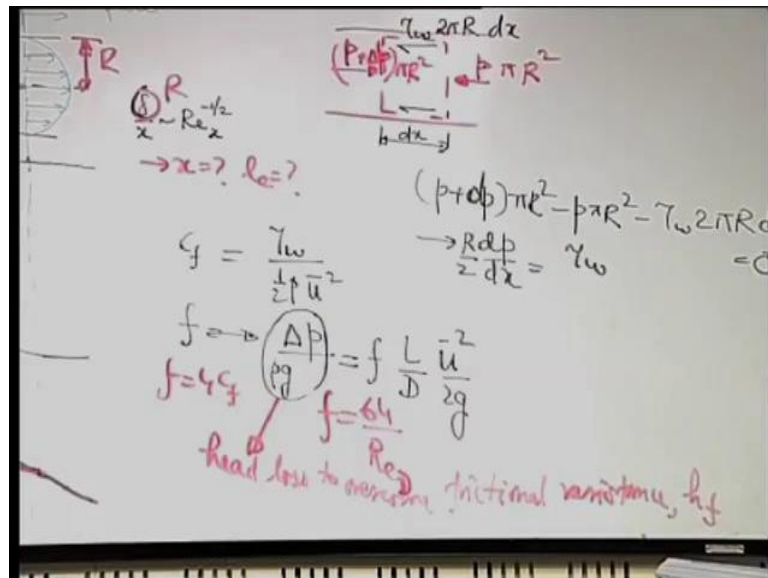 τ_w 2πR dx
(p+dp)πR² p πR²
dx
R
R
δ/x ~ Re_x^{-1/2}
→ x=? le=?
(p+dp)πR² - pπR² - τ_w 2πR d
=0
→ R/2 dp/dx = τ_w
c_f = τ_w / (1/2 ρ ū²)
f → Δp/ρg = f L/D ū²/2g
f=4c_f
f=64/Re_D
head loss to overcome frictional resistance, h_f